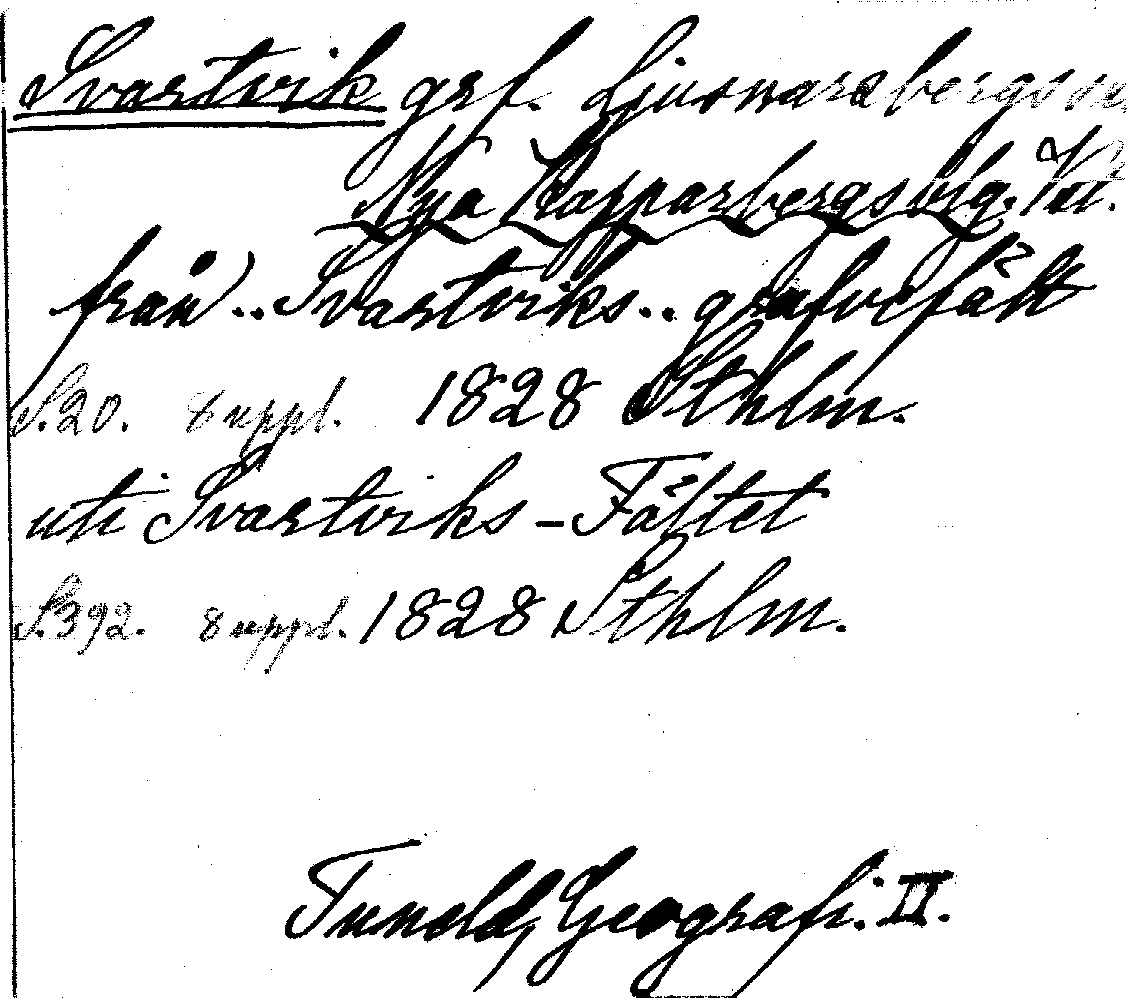 Svartvik grf. Ljusnarsbergs sn.
Nya Kopparbergs blg.
från .. Svartviks .. grufvefält
S. 20. 8 uppl. 1828 Sthlm.
uti Svartviks-Fältet
S. 392. 8 uppl. 1828 Sthlm.
Tuneld, Geografi. II.